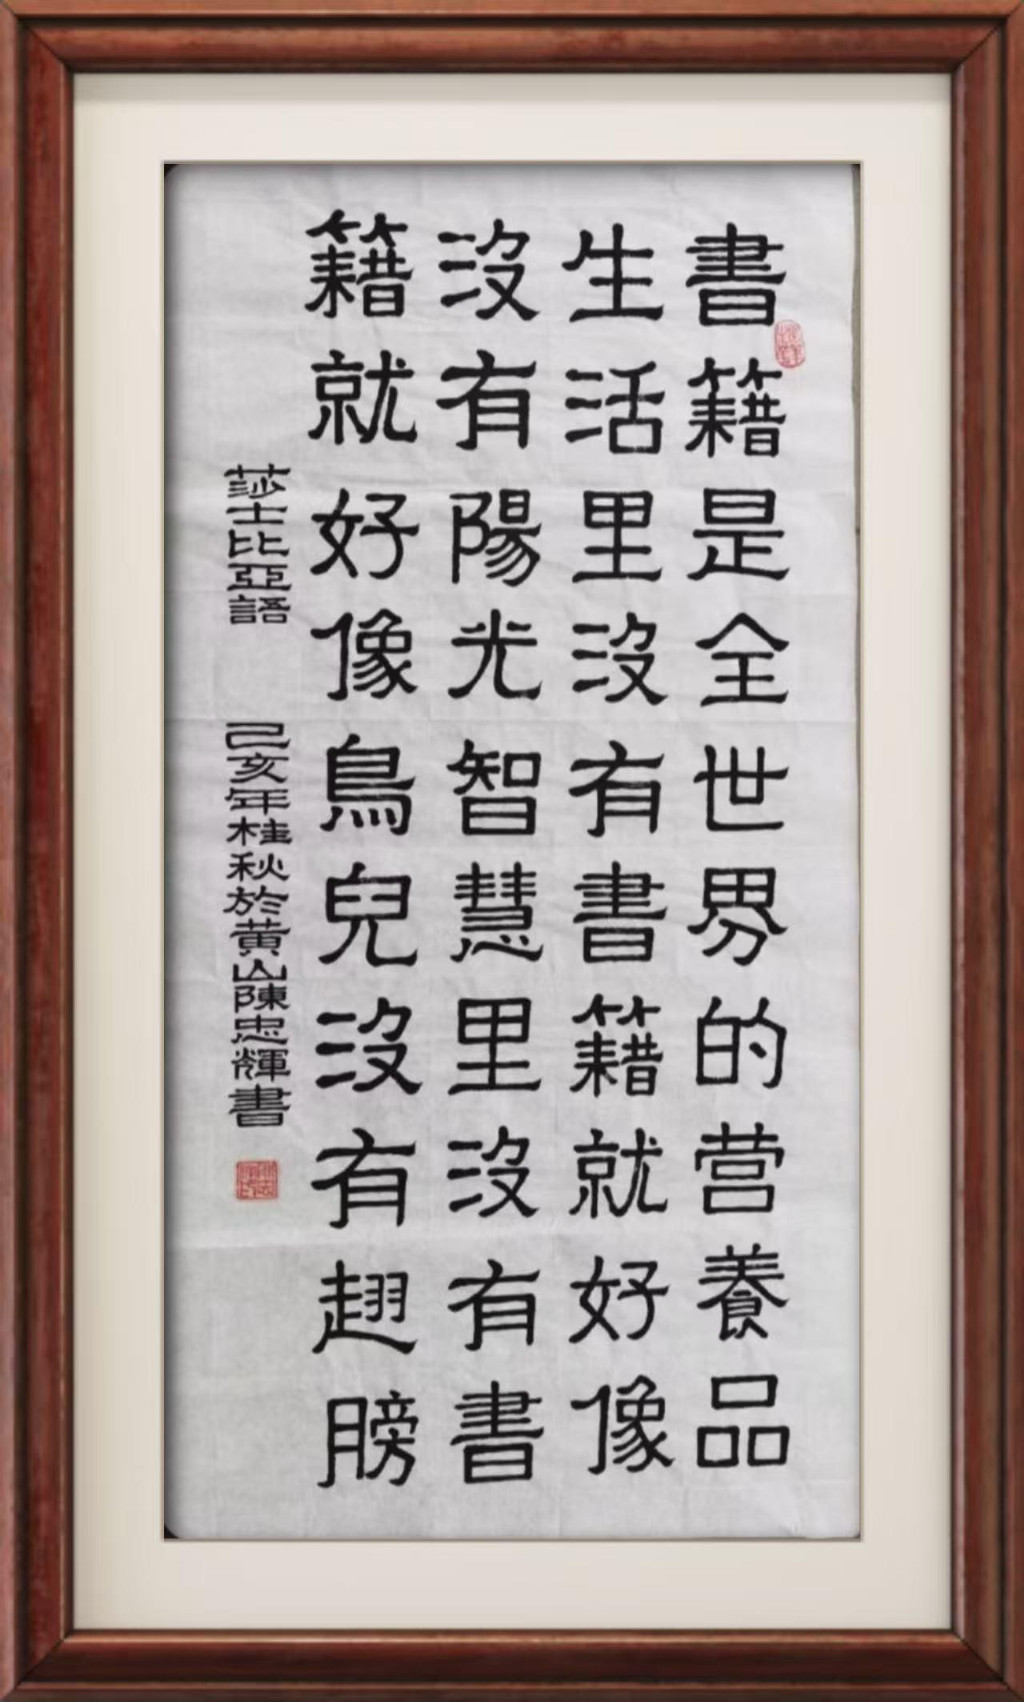 書籍是全世界的营養品
生活里沒有書籍就好像
沒有陽光智慧里沒有書
籍就好像鳥兒沒有翅膀
莎士比亞語 己亥年桂秋於黄山陳忠輝書